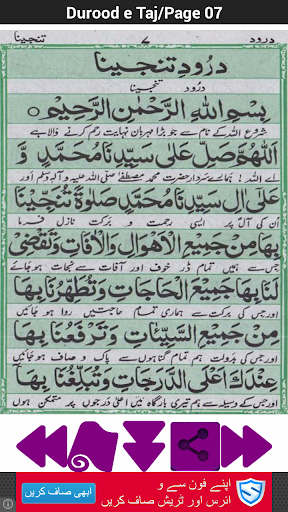 Durood e Taj/Page 07
درود ۷ تنجینا
درُودِ تنجینا
درُود تنجینا
بِسْمِ اللهِ الرَّحْمٰنِ الرَّحِيْمِ
شروع اللہ کے نام سے جو بڑا مہربان نہایت رحم کرنے والا ہے
اَللّٰهُمَّ صَلِّ عَلٰى سَيِّدِنَا مُحَمَّدٍ وَّ
اے اللہ! ہمارے سردار حضرت محمد مصطفٰے صلی اللہ علیہ و آلہٖ وسلم اور
عَلٰٓى اٰلِ سَيِّدِنَا مُحَمَّدٍ صَلٰوةً تُنَجِّيْنَا
ان کی آل پر ایسی رحمت و برکت نازل فرما
بِهَا مِنْ جَمِيْعِ الْاَهْوَالِ وَالْاٰفَاتِ وَتَقْضِيْ
جس سے ہمیں تمام ڈر خوف اور آفات سے نجات ہو جائے
لَنَا بِهَا جَمِيْعَ الْحَاجَاتِ وَتُطَهِّرُنَا بِهَا
اور جس کی برکت سے ہماری تمام حاجتیں روا ہو جائیں
مِنْ جَمِيْعِ السَّيِّاٰتِ وَتَرْفَعُنَا بِهَا
اور جس کی بدولت ہم تمام گناہوں سے پاک و صاف ہو جائیں
عِنْدَكَ اَعْلَى الدَّرَجَاتِ وَتُبَلِّغُنَا بِهَا
اور جس کے وسیلہ سے ہم تیری بارگاہ میں اعلیٰ درجوں پر متمکن ہوں
اپنے فون سے و
ائرس اور ٹریش صاف کریں
ابھی صاف کریں